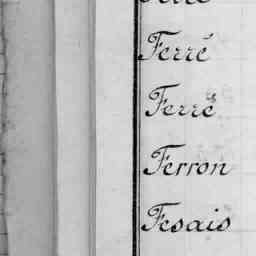 Ferré
Ferré
Ferron
Fesais